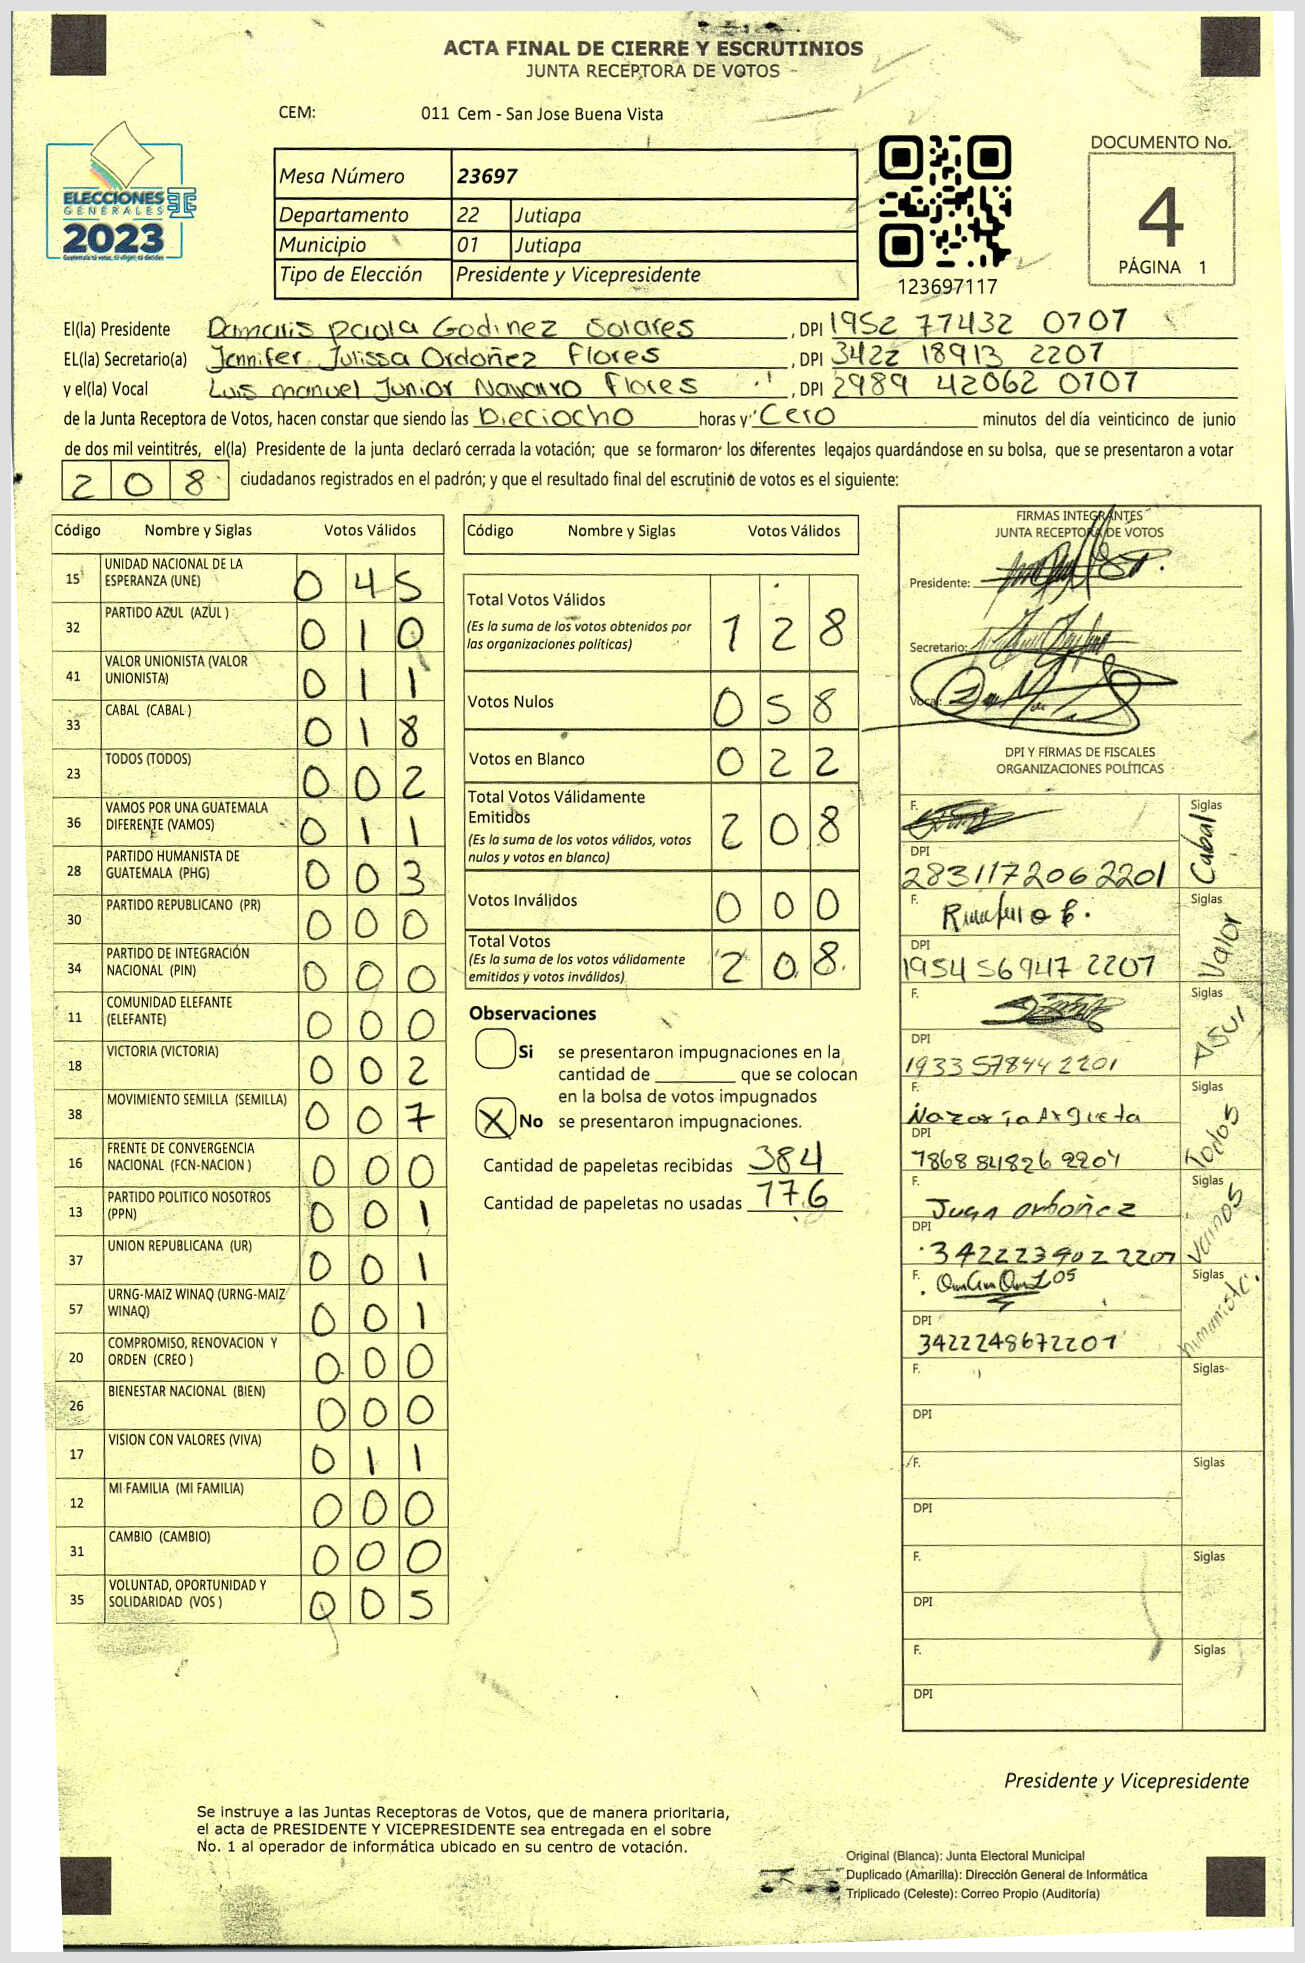 ACTA FINAL DE CIERRE Y ESCRUTINIOS
JUNTA RECEPTORA DE VOTOS
CEM: 011 Cem - San Jose Buena Vista
ELECCIONES
GENERALES
2023
Mesa Número 23697
Departamento 22 Jutiapa
Municipio 01 Jutiapa
Tipo de Elección Presidente y Vicepresidente
123697117
DOCUMENTO No.
4
PÁGINA 1
El(la) Presidente Damaris paola Godinez Solares, DPI 1952 77432 0707
EL(la) Secretario(a) Jennifer Julissa Ordoñez Flores, DPI 3422 18913 2207
y el(la) Vocal Luis manuel Junior Navarro Flores, DPI 2989 42062 0707
de la Junta Receptora de Votos, hacen constar que siendo las Dieciocho horas y Cero minutos del día veinticinco de junio
de dos mil veintitrés, el(la) Presidente de la junta declaró cerrada la votación; que se formaron los diferentes legajos guardándose en su bolsa, que se presentaron a votar
208 ciudadanos registrados en el padrón; y que el resultado final del escrutinio de votos es el siguiente:
Código Nombre y Siglas Votos Válidos
15 UNIDAD NACIONAL DE LA ESPERANZA (UNE) 045
32 PARTIDO AZUL (AZUL ) 010
41 VALOR UNIONISTA (VALOR UNIONISTA) 011
33 CABAL (CABAL ) 018
23 TODOS (TODOS) 002
36 VAMOS POR UNA GUATEMALA DIFERENTE (VAMOS) 011
28 PARTIDO HUMANISTA DE GUATEMALA (PHG) 003
30 PARTIDO REPUBLICANO (PR) 000
34 PARTIDO DE INTEGRACIÓN NACIONAL (PIN) 000
11 COMUNIDAD ELEFANTE (ELEFANTE) 000
18 VICTORIA (VICTORIA) 002
38 MOVIMIENTO SEMILLA (SEMILLA) 007
16 FRENTE DE CONVERGENCIA NACIONAL (FCN-NACION ) 000
13 PARTIDO POLITICO NOSOTROS (PPN) 001
37 UNION REPUBLICANA (UR) 001
57 URNG-MAIZ WINAQ (URNG-MAIZ WINAQ) 001
20 COMPROMISO, RENOVACION Y ORDEN (CREO ) 000
26 BIENESTAR NACIONAL (BIEN) 000
17 VISION CON VALORES (VIVA) 011
12 MI FAMILIA (MI FAMILIA) 000
31 CAMBIO (CAMBIO) 000
35 VOLUNTAD, OPORTUNIDAD Y SOLIDARIDAD (VOS ) 005
Código Nombre y Siglas Votos Válidos
Total Votos Válidos 128
(Es la suma de los votos obtenidos por
las organizaciones políticas)
Votos Nulos 058
Votos en Blanco 022
Total Votos Válidamente
Emitidos 208
(Es la suma de los votos válidos, votos
nulos y votos en blanco)
Votos Inválidos 000
Total Votos 208
(Es la suma de los votos válidamente
emitidos y votos inválidos)
Observaciones
Si se presentaron impugnaciones en la
cantidad de ________ que se colocan
en la bolsa de votos impugnados
X No se presentaron impugnaciones.
Cantidad de papeletas recibidas 384
Cantidad de papeletas no usadas 176
FIRMAS INTEGRANTES
JUNTA RECEPTORA DE VOTOS
Presidente:
Secretario:
Vocal:
DPI Y FIRMAS DE FISCALES
ORGANIZACIONES POLÍTICAS
F. Siglas Cabal
DPI
2831172062201
F. Siglas Valor
DPI
1954 56947 2207
F. Siglas Asul
DPI
1933 57844 2201
F. Nazaria Argueta Siglas Todos
DPI
F. Juan Ordoñez Siglas Vamos
DPI
3422239022207
F. Siglas humanista.
DPI
3422248672207
F. Siglas
DPI
F. Siglas
DPI
F. Siglas
DPI
F. Siglas
DPI
Presidente y Vicepresidente
Se instruye a las Juntas Receptoras de Votos, que de manera prioritaria,
el acta de PRESIDENTE Y VICEPRESIDENTE sea entregada en el sobre
No. 1 al operador de informática ubicado en su centro de votación.
Original (Blanca): Junta Electoral Municipal
Duplicado (Amarilla): Dirección General de Informática
Triplicado (Celeste): Correo Propio (Auditoría)